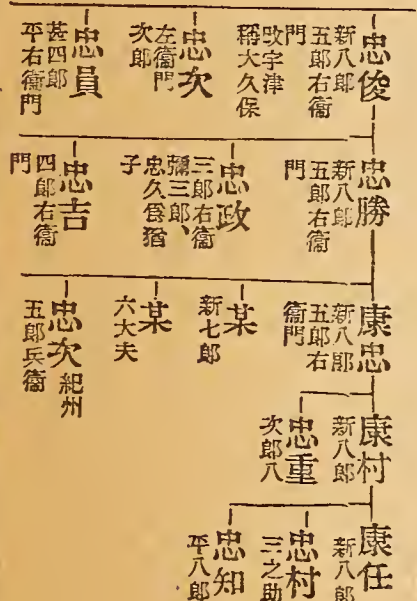 忠俊
新八郎
五郎右衞
門
改宇津
稱大久保
忠次
左衞門
次郎
忠員
甚四郎
平右衞門
忠勝
新八郎
五郎右衞
門
忠政
三郎右衞
彌三郎、
忠久爲猶
子
忠吉
四郎右衞
門
康忠
新八郎
五郎右
衞門
某
新七郎
某
六大夫
忠次
紀州
五郎兵衞
康村
新八郎
忠重
次郎八
康任
新八郎
忠村
三之助
忠知
平八郎